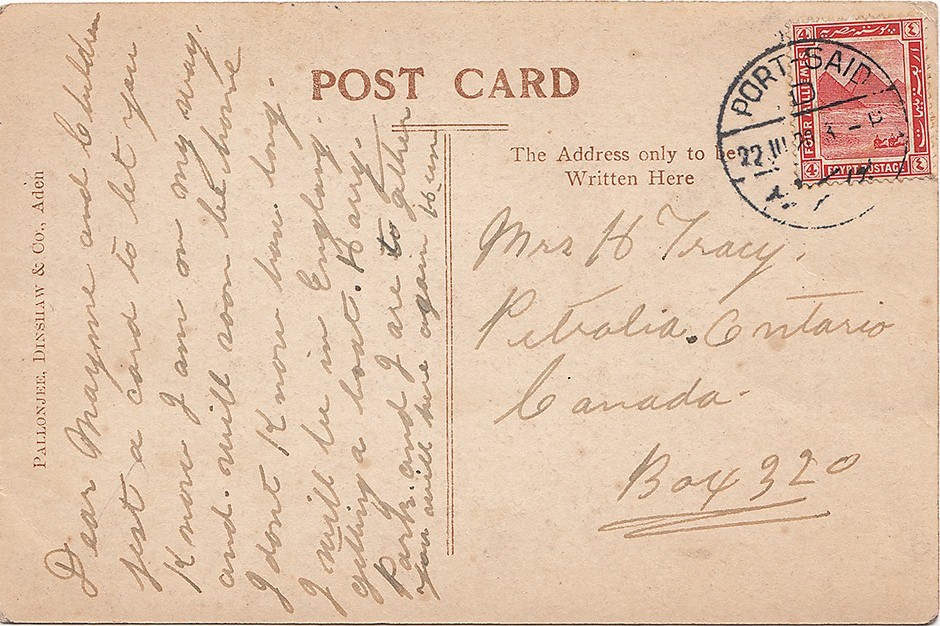 POST CARD
The Address only to be
Written Here
PALLONJEE, DINSHAW & Co., Aden
Dear Mayme and Children
jest a card to let you
Know I am on my way.
and will soon be home
I dont Know how long.
I will be in England.
getting a boat. Harry.
Park. and I are to gather
you will here again
Mrs H Tracy.
Petrolia. Ontario
Canada.
Box 320
PORT-SAID
22 III
4 ٤
FOR
EGYPT POSTAGE
4 ٤